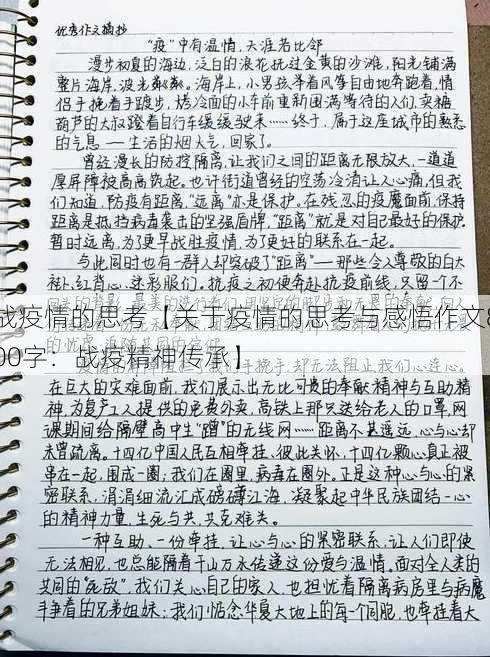 优秀作文摘抄
“疫”中有温情,天涯若比邻
漫步初夏的海边,泛白的浪花抚过金黄的沙滩,阳光铺满
整片海岸,波光粼粼。海岸上,小男孩举着风筝自由地奔跑着,情
侣手挽着手踱步,烤冷面的小车前重新围满等待的人们,卖糖
葫芦的大叔蹬着自行车缓缓驶来……终于,属于这座城市的熟悉
的气息——生活的烟火气,回家了。
曾经漫长的防控隔离,让我们之间的距离无限放大,一道道
厚屏障被高高筑起。也许街道曾经的空荡冷清让人心痛,但我
们知道,防疫有距离,“远离”亦是保护。在残忍的疫魔面前,保持
距离是抵挡病毒袭击的坚强盾牌,“距离”就是对自己最好的保护。
暂时远离,为了更早战胜疫情,为了更好的联系在一起。
与此同时也有一群人却突破了“距离”——那些令人尊敬的白大
褂、红背心、迷彩服们。抗疫之初便奔赴抗疫前线,只留个不
战疫情的思考【关于疫情的思考与感悟作文8
00字:战疫精神传承】
手挽手,却无法阻止我们心连心。
在巨大的灾难面前,我们展示出无比可贵的奉献精神与互助精
神,为复产工人提供的免费外卖,高铁上那只送给老人的口罩,网
课期间给隔壁高中生“蹭”的无线网……距离不甚遥远,心与心却
未曾疏离。十四亿中国人民互相牵挂,彼此关怀,十四亿颗心真正被
串在一起,围成一圈:我们在圈里,病毒在圈外。正是这种心与心的紧
密联系,涓涓细流汇成磅礴江海,凝聚起中华民族团结一心
的精神力量,生死与共,共克难关。
一种互助、一份牵挂,让心与心的紧密联系,让人们即使
无法相见,也总能隔着千山万水传递这份爱与温情。面对全人类的
共同的“死敌”,我们关心自己的家人,也担忧着隔离病房里与病魔
手争着的兄弟姐妹;我们惦念华夏大地上的每一个同胞,也牵挂着大